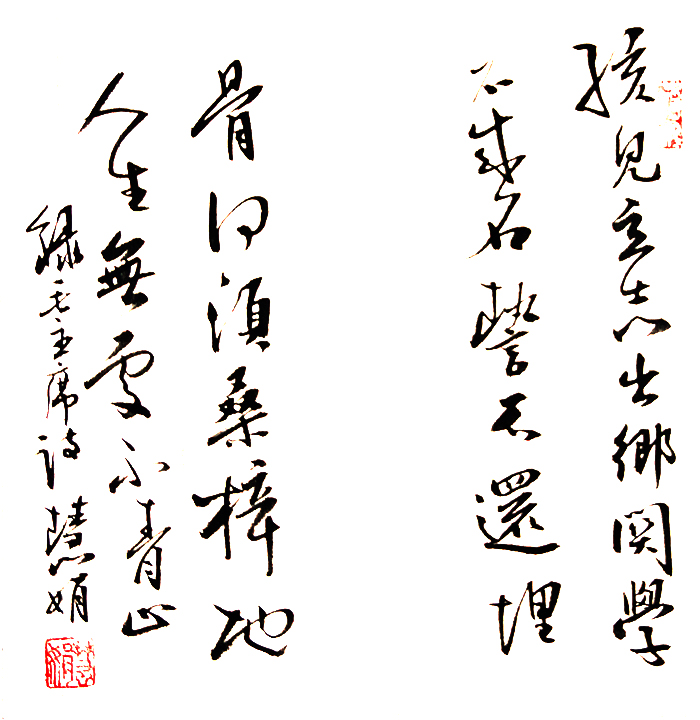 孩兒立志出鄉関學
不成名誓不還埋
骨何須桑梓地
人生無處不青山
録毛主席詩 慧娟